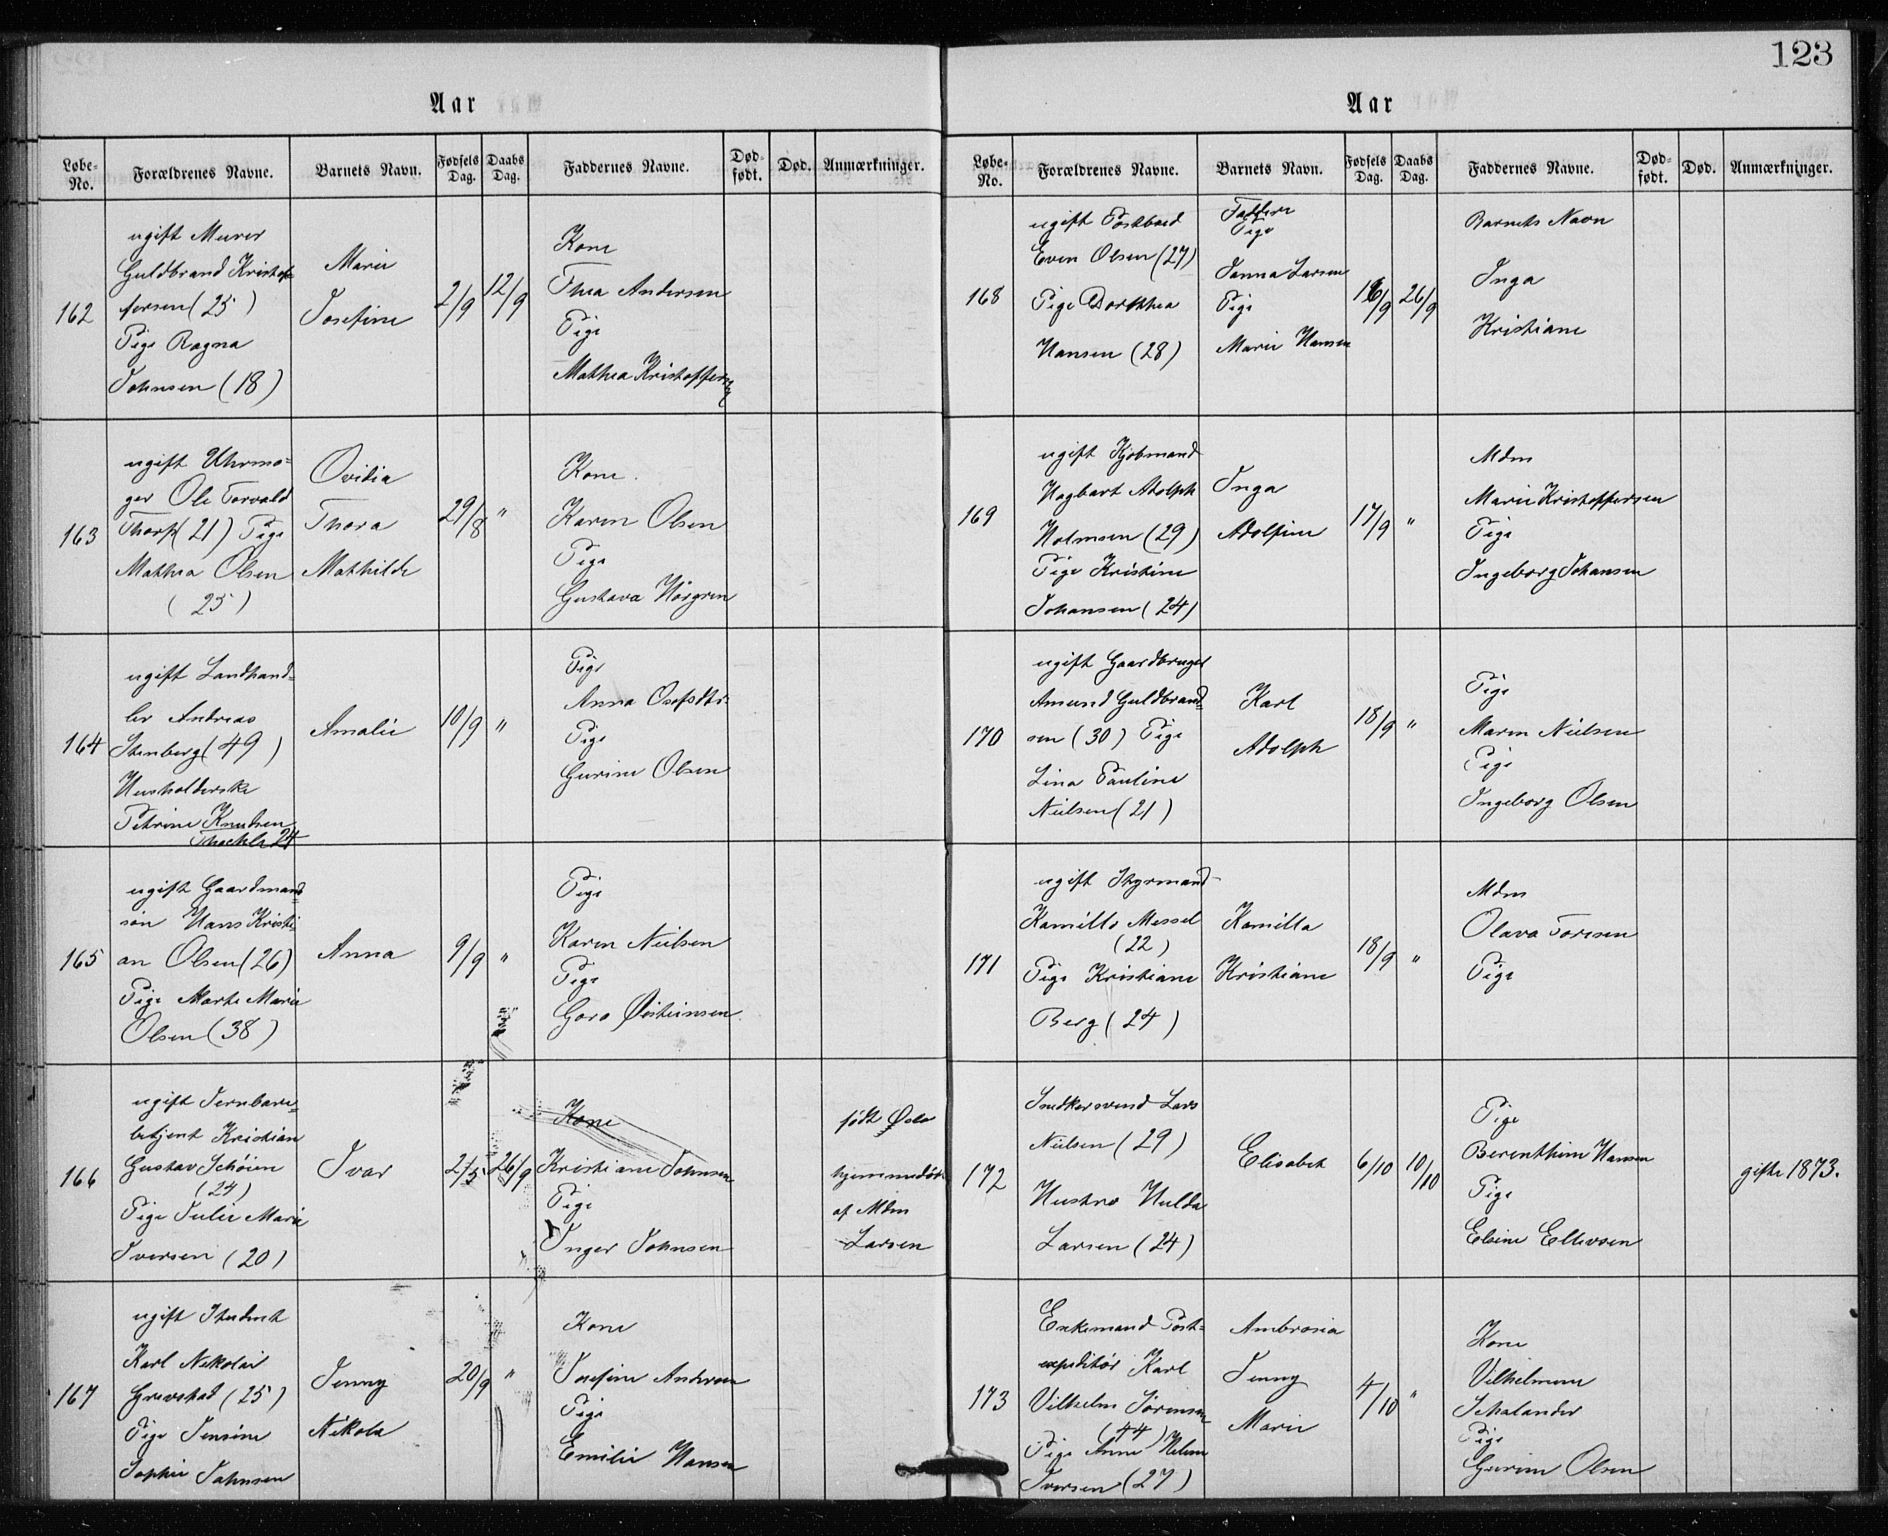 123
Aar
Løbe-No. Forældrenes Navne. Barnets Navn. Fødsels Dag. Daabs Dag. Faddernes Navne. Død-født. Død. Anmærkninger.
162
ugift Murer
Guldbrand Kristof-
fersen (25)
Pige Ragna
Johnsen (18)
Marie
Josefine
2/9
12/9
Kone
Thea Andersen
Pige
Mathea Kristoffersen
163
ugift Uhrma=
ger Ole Torvald
Thorp (21) Pige
Mathea Olsen
(25)
Ovidia
Thora
Mathilde
29/8
"
Kone.
Karen Olsen
Pige
Gustava Norgren
164
ugift Landhand=
ler Andreas
Stenberg (49)
Husholderske
Petrine Knudsen
24
Amalie
10/9
"
Pige
Anna
Pige
Gurine Olsen
165
ugift Gaardmand
søn Hans Kristi
an Olsen (26)
Pige Marte Marie
Olsen (38)
Anna
9/9
"
Pige
Karen Nielsen
Pige
Goro Østeinsen.
166
ugift Jernbane=
betjent Kristian
Gustav Schöien
(24)
Pige Julie Marie
Iversen (20)
Ivar
2/5
26/9
Kone
Kristiane Johnsen
Pige
Inger Johnsen
født Oslo
hjemmedøbt
af Mdm
Larsen
167
ugift Student
Karl Nikolai
Grevstad (25)
Pige Jensine
Sophie Johnsen
Jenny
Nikola
20/9
"
Kone
Josefine Andersen
Pige
Emilie Hansen
Aar
Løbe-No. Forældrenes Navne. Barnets Navn. Fødsels Dag. Daabs Dag. Faddernes Navne. Død-født. Død. Anmærkninger.
168
ugift Postbud
Even Olsen (27)
Pige Dorthea
Hansen (28)
Faddere
Pige
Janna Larsen
Pige
Marie Hansen
16/9
26/9
Barnets Navn
Inga
Kristiane
169
ugift Kjøbmand
Hagbart Adolph
Holmsen (29)
Pige Kristine
Johansen (24)
Inga
Adolfine
17/9
"
Mdm
Marie Kristoffersen
Pige
Ingeborg Johansen
170
ugift Gaardbruger
Amund Guldbrand=
sen (30) Pige
Lina Pauline
Nielsen (21)
Karl
Adolph
18/9
"
Pige
Maren Nielsen
Pige
Ingeborg Olsen
171
ugift Styrmand
Kamillo Messel
(22)
Pige Kristiane
Berg (24)
Kamilla
Kristiane
18/9
"
Mdm
Olava Toresen
Pige
172
Snedkersvend Lars
Nielsen (29)
Hustro Hulda
Larsen (24)
Elisabet
6/10
10/10
Pige
Berenthine Hansen
Pige
Elsine Ellevsen
gifte 1873.
173
Enkemand Post=
expeditör Karl
Vilhelm Sørensen
(44)
Pige Anne Helene
Iversen (27)
Ambrosia
Jenny
Marie
4/10
"
Kone
Vilhelmine
Schalander
Pige
Gurine Olsen